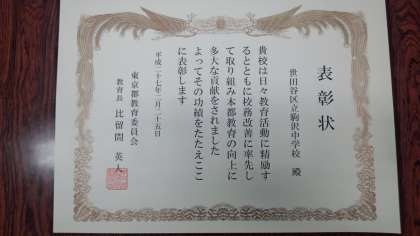 表彰状
世田谷区立駒沢中学校 殿
貴校は日々教育活動に精励す
るとともに校務改善に率先し
て取り組み本都教育の向上に
多大な貢献をされました
よってその功績をたたえここ
に表彰します
平成二十七年二月二十五日
東京都教育委員会
教育長 比留間 英人